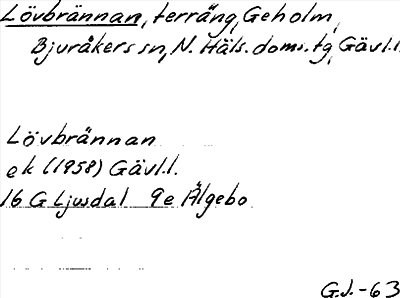 Lövbrännan, terräng, Geholm,
Bjuråkers sn, N. Häls. doms. tg, Gävl.l.
Lövbrännan
ek (1958) Gävl.l.
16 G Ljusdal 9e Älgebo
G.J.-63